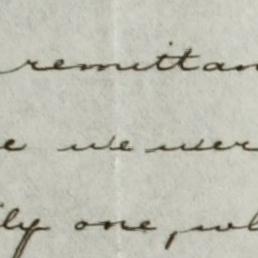 remittan
e we wer
ily one, wh